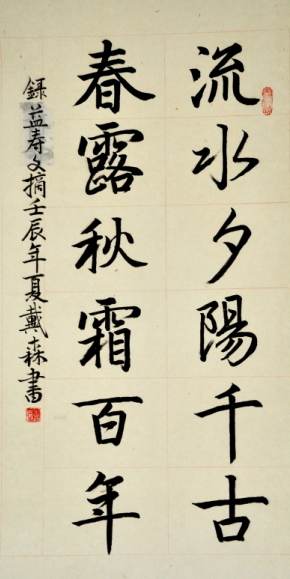 流水夕陽千古
春露秋霜百年
録益寿文摘壬辰年夏戴森書